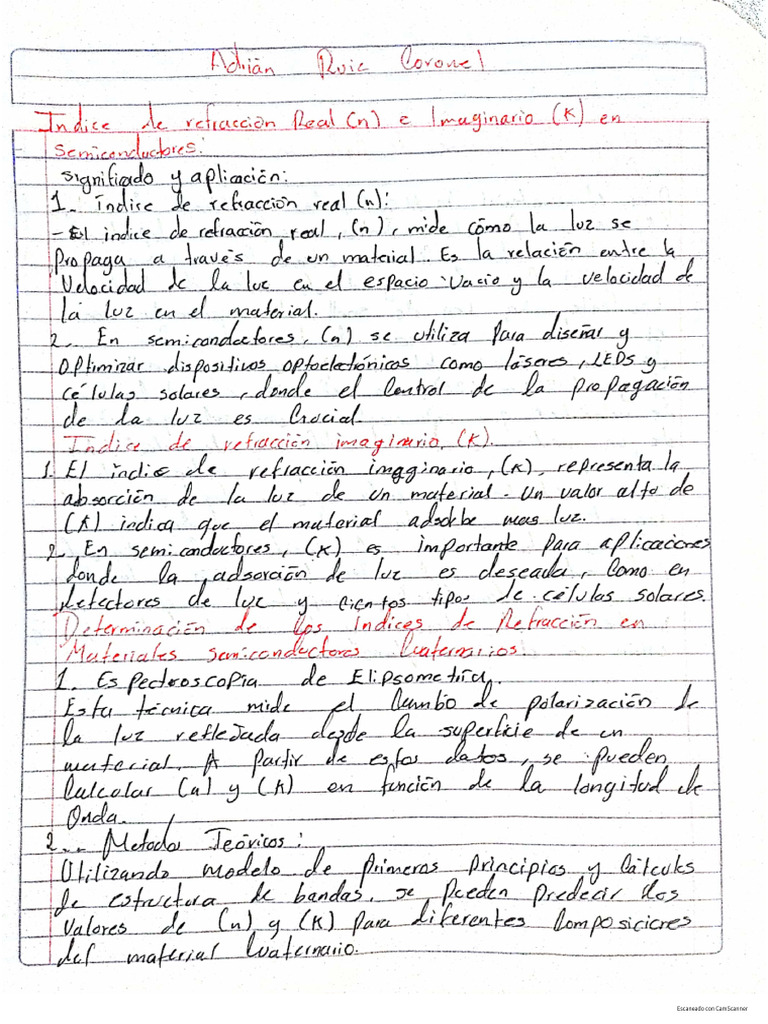 Adrián Ruiz Coronel
Indice de refracción Real (n) e Imaginario (K) en
semiconductores:
significado y aplicación:
1.- índice de refracción real (n):
- El indice de refracción real, (n), mide cómo la luz se
Propaga a través de un material. Es la relación entre la
Velocidad de la luz en el espacio vacio y la velocidad de
la luz en el material.
2.- En semiconductores, (n) se utiliza para diseñar y
Optimizar dispositivos optoelectónicos como láseres, LEDs y
células solares, donde el Control de la propagación
de la luz es Crucial.
Indice de refracción imaginario, (K).
1. El índice de refracción imagginario, (K), representa la
absorción de la luz de un material. Un valor alto de
(K) indica que el material adsorbe mas luz.
2. En semiconductores, (K) es importante para aplicaciones
donde la adsorción de luz es deseada, Como en
detectores de luz y cientos tipos de células solares.
Determinación de los Indices de Refracción en
Materiales semiconductores Cuaternarios.
1. Espectroscopia de Elipsometría,
Esta técnica mide el Cambio de polarización de
la luz reflejada desde la superficie de un
material. A partir de estos datos, se pueden
Calcular (n) y (K) en función de la longitud de
Onda.
2.. Metodos Teóricos:
Utilizando modelo de Primeros Principios y Cálculos
de estructura de bandas, se pueden Predecir los
Valores de (n) y (K) Para diferentes Composiciones
del material Cuaternario.
Escaneado con CamScanner